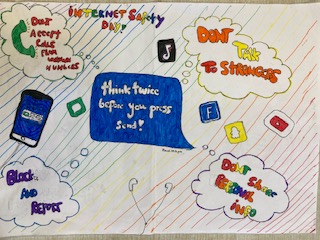 INTERNET SAFETY
DAY!
DONT
ACCEPT
CALLS
FROM
UNKNOWN
NUMBERS
DONT
TALK
TO STRANGERS
think twice
before you press
send!
BLOCK
AND
REPORT
DONT SHARE
PERSONAL
INFO